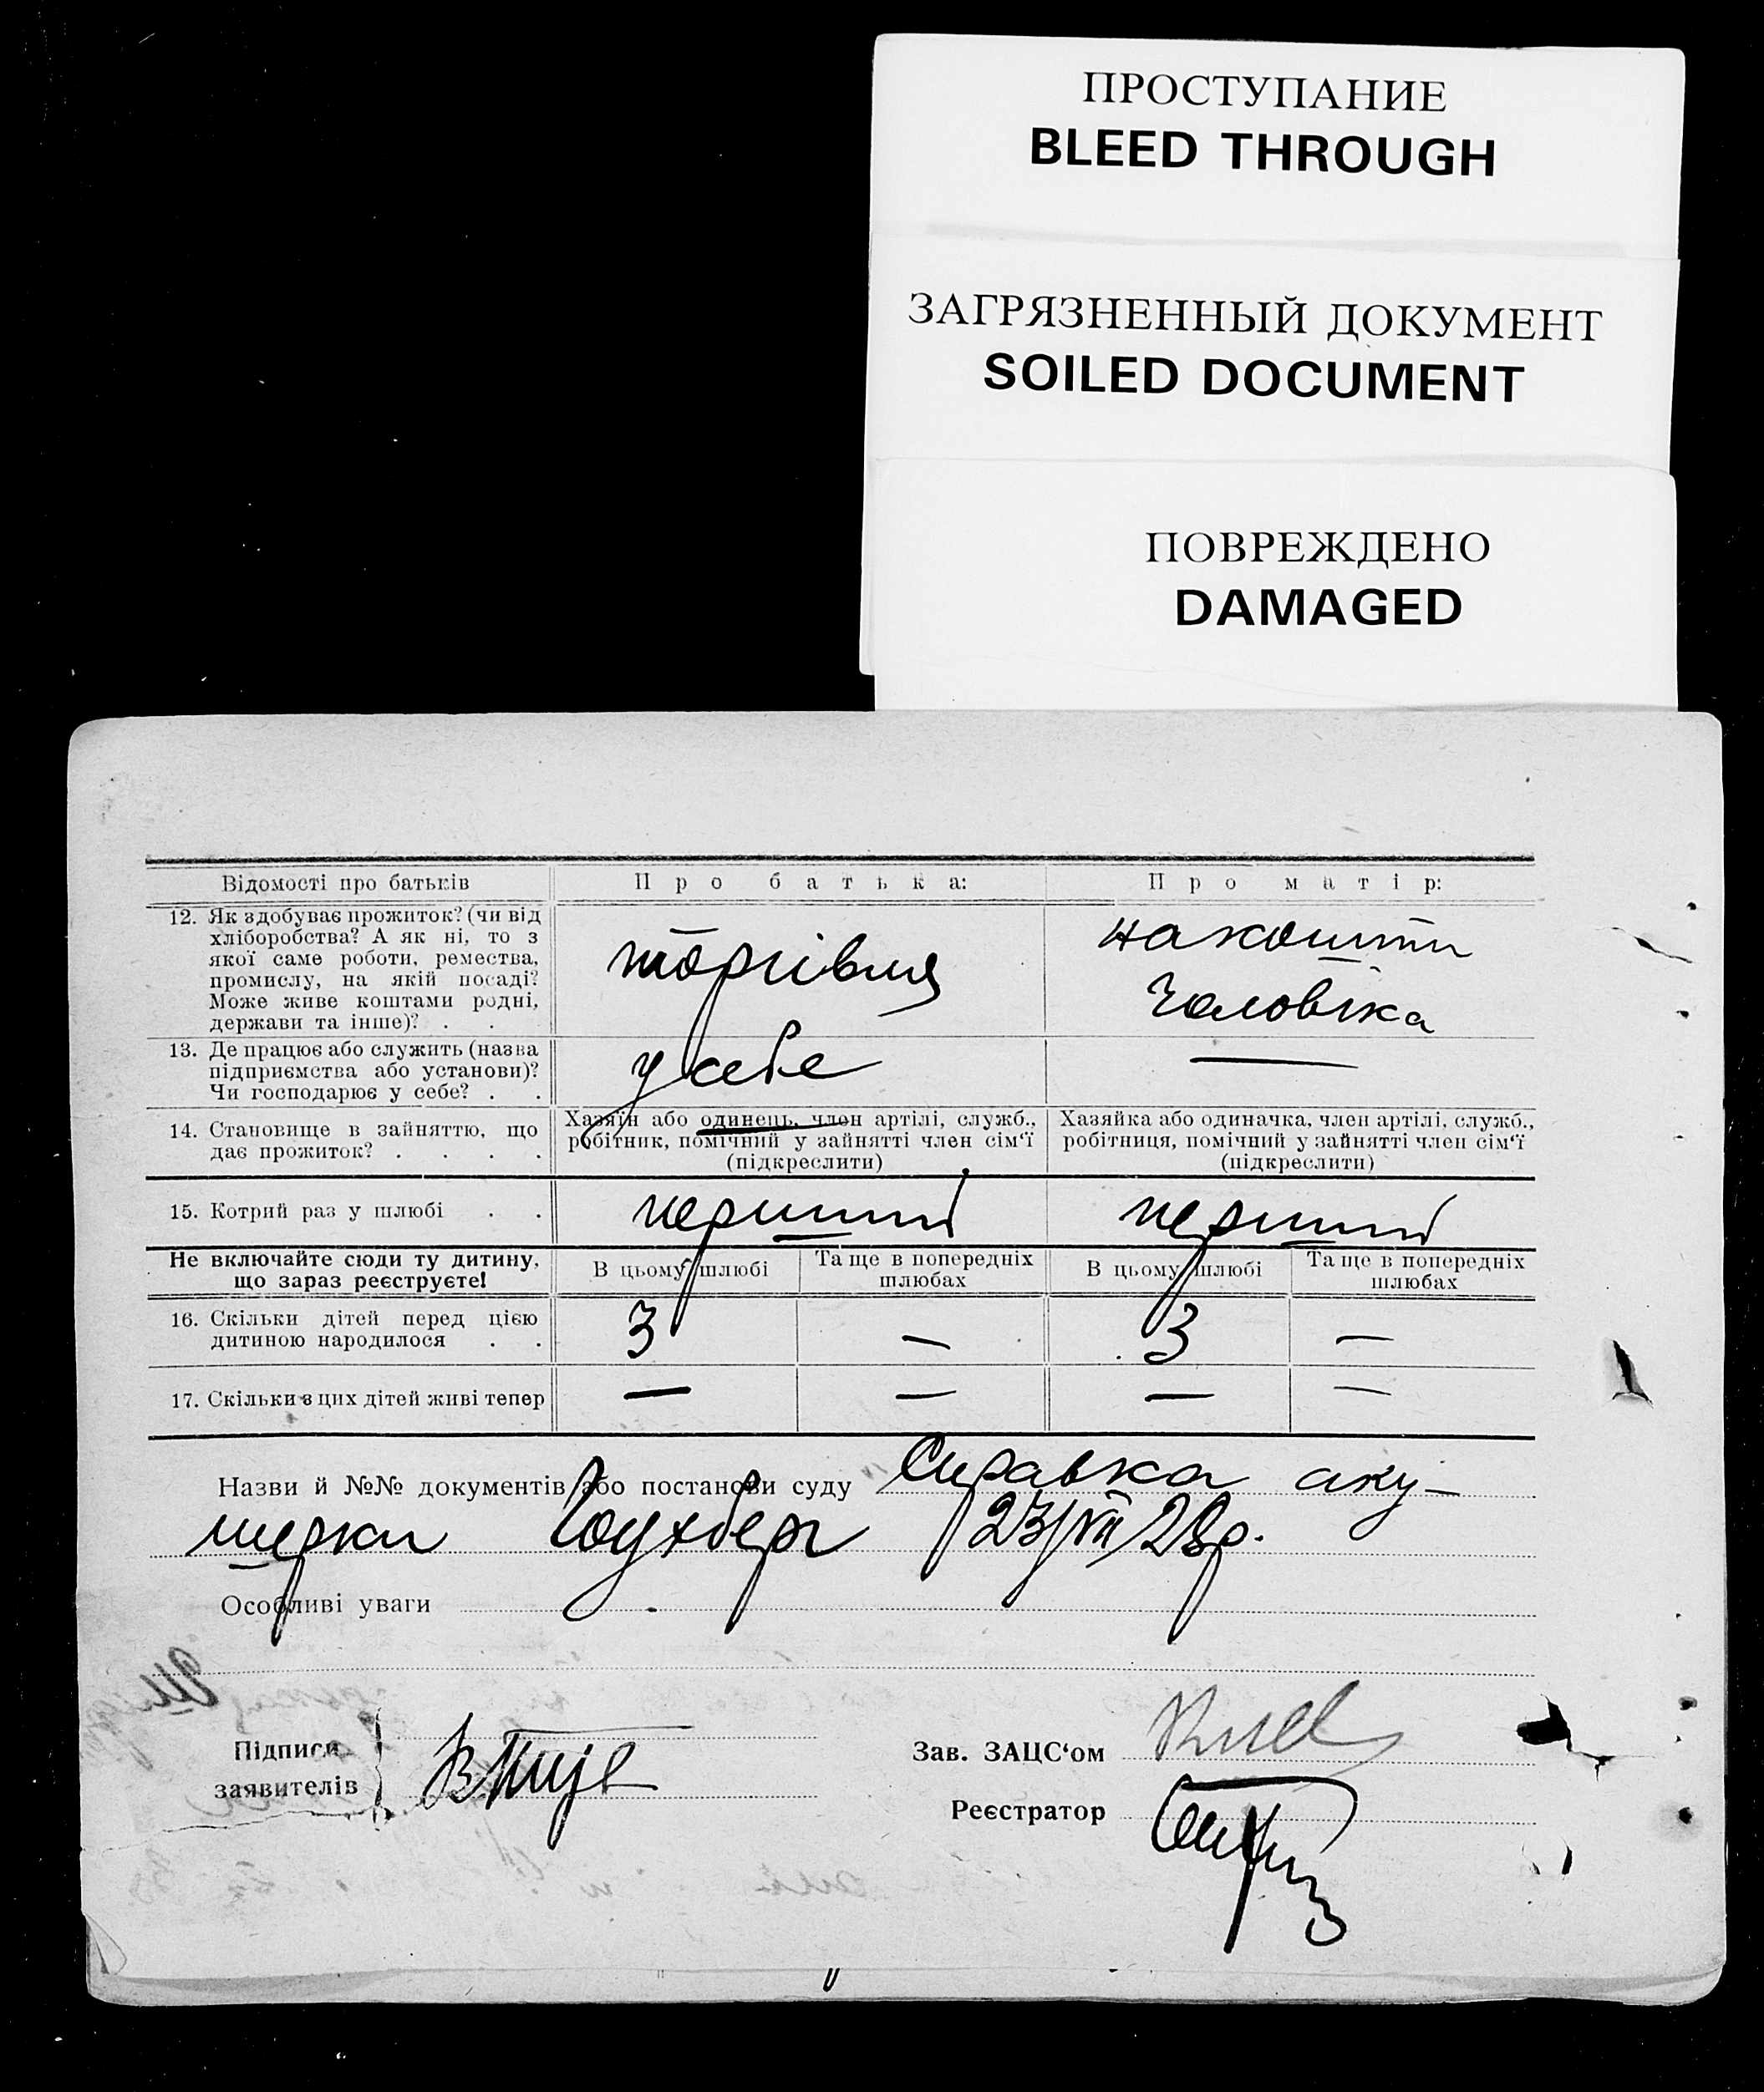 ПРОСТУПАНИЕ
BLEED THROUGH
ЗАГРЯЗНЕННЫЙ ДОКУМЕНТ
SOILED DOCUMENT
ПОВРЕЖДЕНО
DAMAGED
Відомості про батьків
Про батька:
Про матір:
12. Як здобуває прожиток? (чи від
хліборобства? А як ні, то з
якої саме роботи, ремества,
промислу, на якій посаді?
Може живе коштами родні,
держави та інше)? . .
торгівля
на кошти
чоловіка
13. Де працює або служить (назва
підприємства або установи)?
Чи господарює у себе? . .
у себе
—
14. Становище в зайняттю, що
дає прожиток? . . . .
Хазяїн або одинець, член артілі, служб.,
робітник, помічний у зайнятті член сім‘ї
(підкреслити)
Хазяйка або одиначка, член артілі, служб.,
робітниця, помічний у зайнятті член сім‘ї
(підкреслити)
15. Котрий раз у шлюбі . .
перший
перший
Не включайте сюди ту дитину,
що зараз реєструєте!
В цьому шлюбі
Та ще в попередніх
шлюбах
В цьому шлюбі
Та ще в попередніх
шлюбах
16. Скільки дітей перед цією
дитиною народилося . .
3
—
3
—
17. Скільки з цих дітей живі тепер
—
—
—
—
Назви й №№ документів або постанови суду Справка аку-
шерки 23/VII 28р.
Особливі уваги
Підписи
заявителів
Зав. ЗАЦС‘ом
Реєстратор